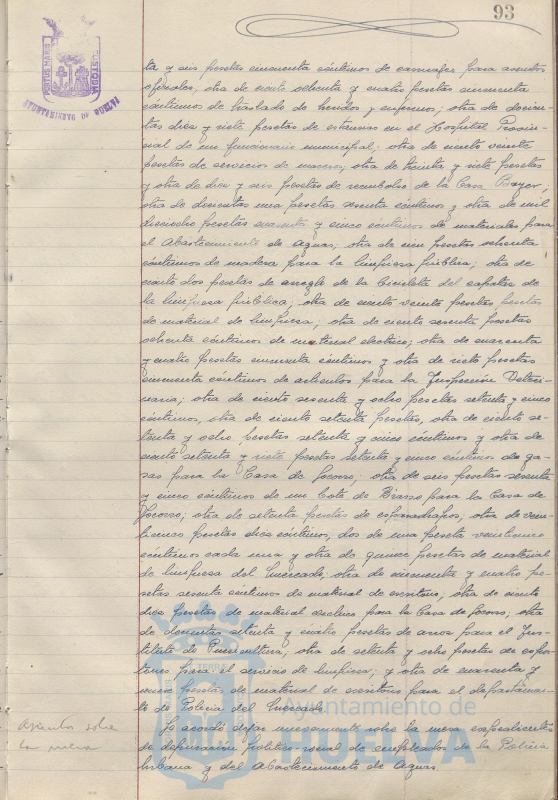 93
PORTUS MARIS
CUSTODIA
AYUNTAMIENTO DE HUELVA
ta y seis pesetas cincuenta céntimos de carruajes para asuntos
oficiales; otra de ciento ochenta y cuatro pesetas cincuenta
céntimos de traslado de heridos y enfermos; otra de doscien-
tas diez y siete pesetas de estancias en el Hospital Provin-
cial de un funcionario municipal; otra de ciento veinte
pesetas de servicios de maceros; otra de treinta y siete pesetas
y otra de diez y seis pesetas de reembolso de la Casa Bayer;
otra de doscientas una pesetas sesenta céntimos y otra de mil
dieciocho pesetas cuarenta y cinco céntimos de materiales para
el Abastecimiento de Aguas; otra de una pesetas ochenta
céntimos de madera para la limpieza pública; otra de
ciento dos pesetas de arreglo de la bicicleta del capataz de
la limpieza pública; otra de ciento veinte pesetas pesetas
de material de limpieza; otra de ciento sesenta pesetas
ochenta céntimos de material eléctrico; otra de cuarenta
y cuatro pesetas cincuenta céntimos y otra de siete pesetas
cincuenta céntimos de artículos para la Inspección Veteri-
naria; otra de ciento sesenta y ocho pesetas setenta y cinco
céntimos, otra de ciento setenta pesetas, otra de ciento se-
tenta y ocho pesetas setenta y cinco céntimos y otra de
ciento setenta y siete pesetas setenta y cinco céntimos de ga-
sas para la Casa de Socorro; otra de seis pesetas sesenta
y cinco céntimos de un bote de Brasso para la Casa de
Socorro; otra de setenta pesetas de esparadrapos; otra de vein-
ticinco pesetas diez céntimos, dos de una peseta veinticinco
céntimos cada una y otra de quince pesetas de material
de limpieza del Mercado; otra de cincuenta y cuatro pe-
setas sesenta céntimos de material de escritorio; otra de ciento
diez pesetas de material
para la Casa de Socorro; otra
de doscientas setenta y cuatro pesetas de aros para el Ins-
tituto de Puericultura; otra de setenta y ocho pesetas de espor-
tones para el servicio de limpieza; y otra de cuarenta y
cinco pesetas de material de escritorio para el departamen-
to de Policía del Mercado.
Asuntos sobre
la mesa
Se acordó dejar nuevamente sobre la mesa expedientes
de depuración político-social de empleados de la Policía
Urbana y del Abastecimiento de Aguas.
Ayuntamiento de
HUELVA